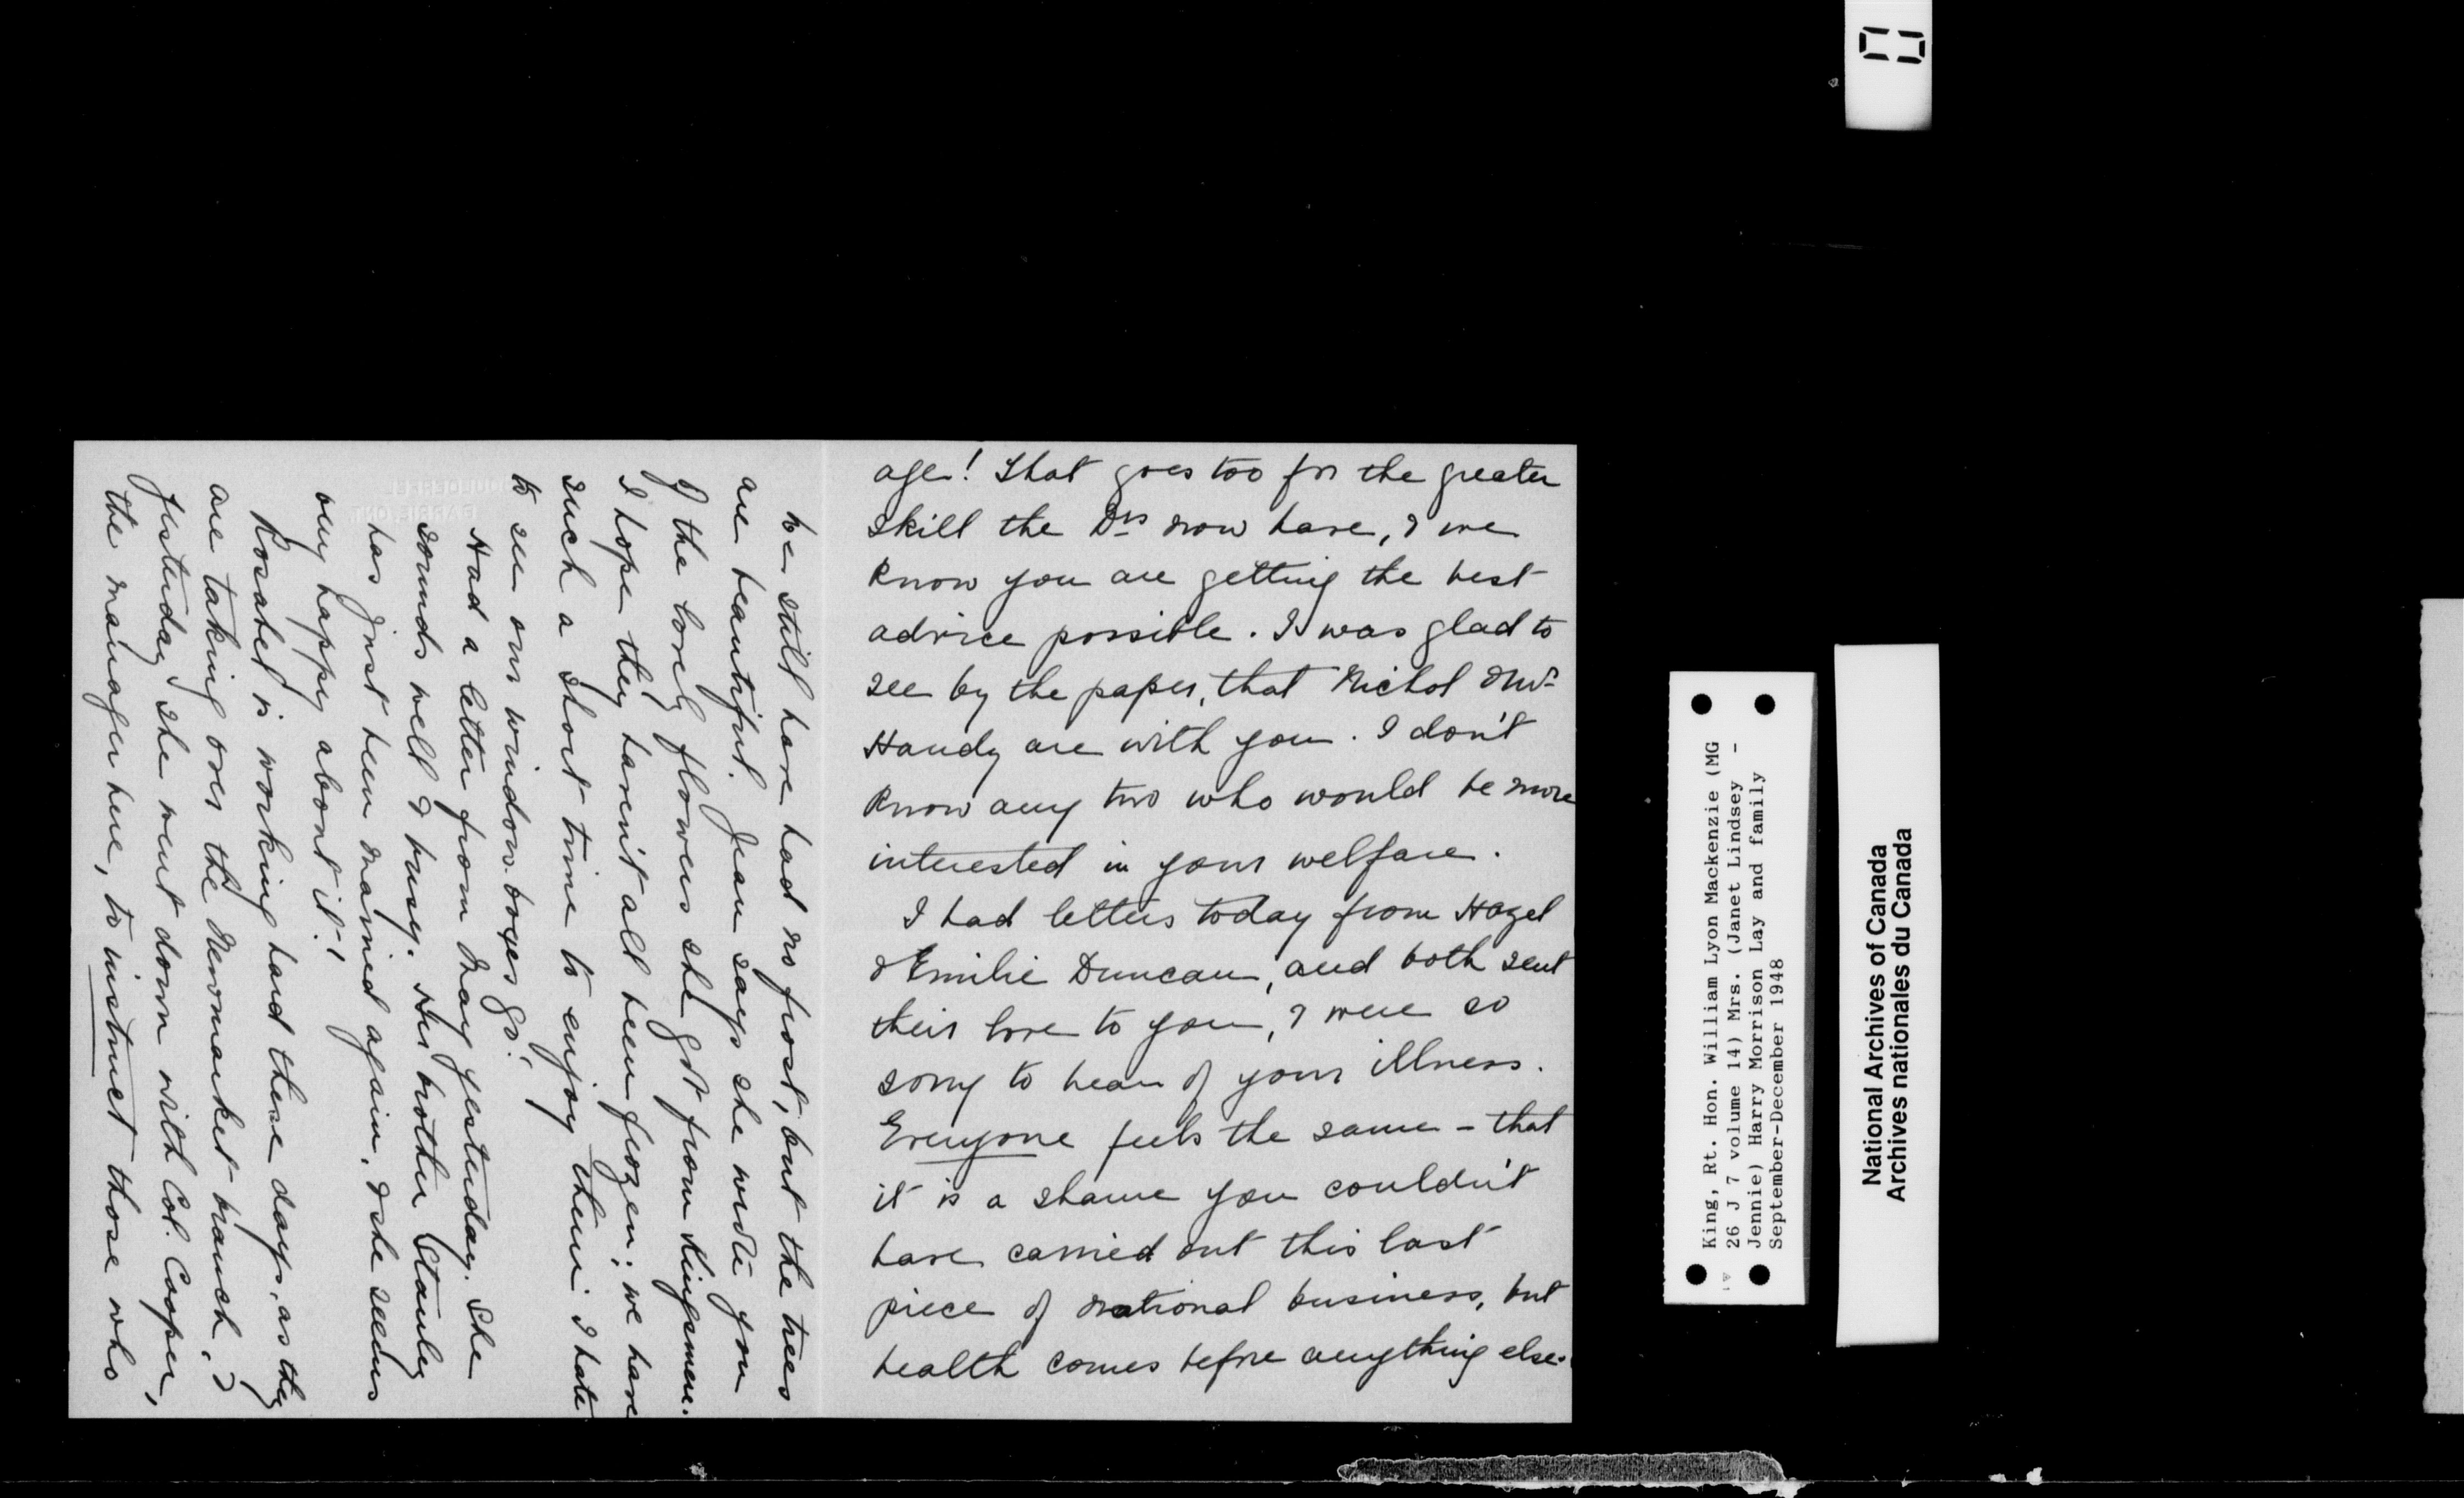 age! That goes too for the greater
skill the Drs now have, & we
know you are getting the best
advice possible. I was glad to
see by the paper, that Nichol & Mr
Handy are with you. I don't
know any two who would be more
interested in your welfare.
I had letters today from Hazel
& Emilie Duncan, and both sent
their love to you, & were so
sorry to hear of your illness.
Everyone feels the same – that
it is a shame you couldn't
have carried out this last
piece of national business, but
health comes before anything else.
We still have had no frost, but the trees
are beautiful. Jean says she wrote you
of the lovely flowers she got from Kingsmere.
I hope they haven't all been frozen; we have
such a short time to enjoy them & I hate
to see our window boxes go!
Had a letter from May yesterday. She
sounds well & busy. Her brother Stanley
has just been married again, & she seems
very happy about it!
Rosabel is working hard these days, as they
are taking over the Newmarket branch, &
yesterday she went down with Col. Cooper,
the manager here, to instruct those who
King, Rt. Hon. William Lyon Mackenzie (MG
26 J 7 volume 14) Mrs. (Janet Lindsey -
Jennie) Harry Morrison Lay and family
September-December 1948
National Archives of Canada
Archives nationales du Canada